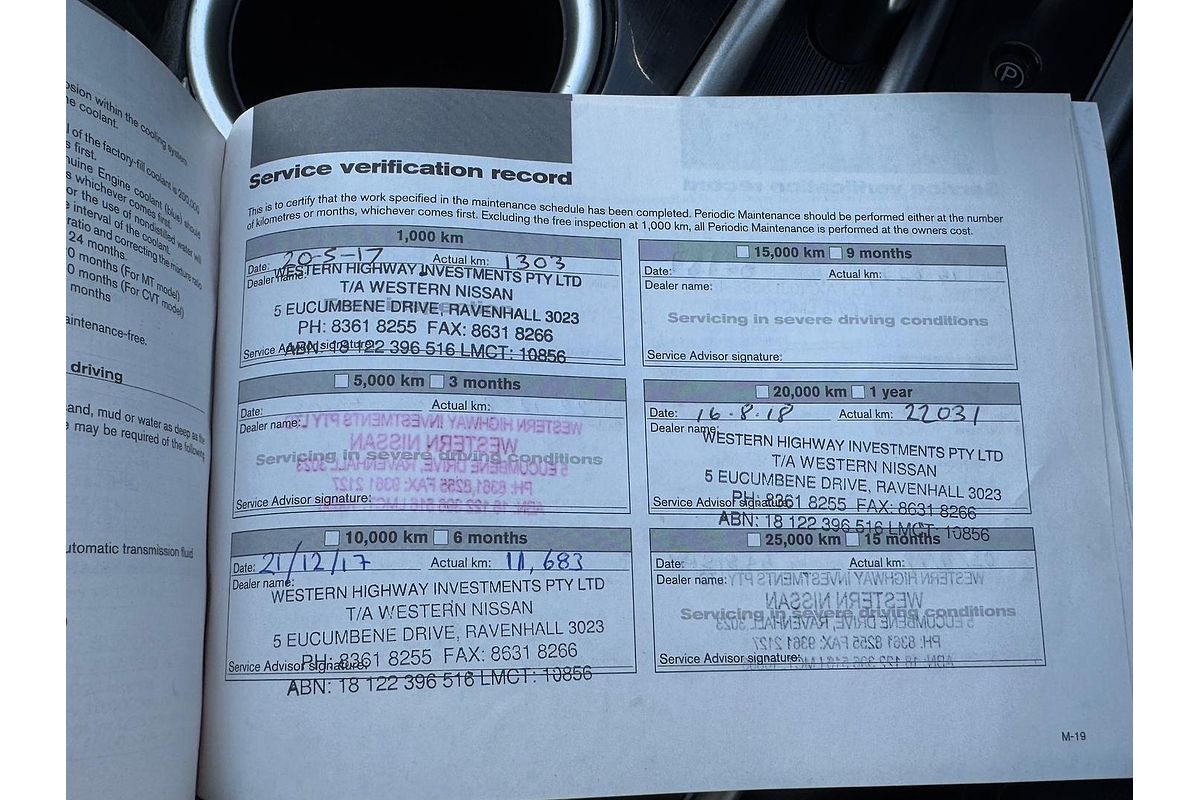 osion within the cooling system
he coolant.
l of the factory-fill coolant is 200,000
s first.
nuine Engine coolant (blue) should
s whichever comes first.
or the use of nondistilled water will
e interval of the coolant.
ratio and correcting the mixture ratio
24 months.
0 months (For MT model)
0 months (For CVT model)
months
aintenance-free.
driving
sand, mud or water as deep as the
e may be required of the following
utomatic transmission fluid
Service verification record
This is to certify that the work specified in the maintenance schedule has been completed. Periodic Maintenance should be performed either at the number
of kilometres or months, whichever comes first. Excluding the free inspection at 1,000 km, all Periodic Maintenance is performed at the owners cost.
1,000 km
Date: 20-5-17 Actual km: 1303
Dealer name:
WESTERN HIGHWAY INVESTMENTS PTY LTD
T/A WESTERN NISSAN
5 EUCUMBENE DRIVE, RAVENHALL 3023
PH: 8361 8255 FAX: 8631 8266
Service Advisor signature:
ABN: 18 122 396 516 LMCT: 10856
5,000 km 3 months
Date: Actual km:
Dealer name:
WESTERN HIGHWAY INVESTMENTS PTY LTD
WESTERN NISSAN
Servicing in severe driving conditions
5 EUCUMBENE DRIVE, RAVENHALL 3023
PH: 8361 8255 FAX: 9361 2127
Service Advisor signature:
10,000 km 6 months
Date: 21/12/17 Actual km: 11,683
Dealer name:
WESTERN HIGHWAY INVESTMENTS PTY LTD
T/A WESTERN NISSAN
5 EUCUMBENE DRIVE, RAVENHALL 3023
PH: 8361 8255 FAX: 8631 8266
Service Advisor signature:
ABN: 18 122 396 516 LMCT: 10856
15,000 km 9 months
Date: Actual km:
Dealer name:
Servicing in severe driving conditions
Service Advisor signature:
20,000 km 1 year
Date: 16.8.18 Actual km: 22031
Dealer name:
WESTERN HIGHWAY INVESTMENTS PTY LTD
T/A WESTERN NISSAN
5 EUCUMBENE DRIVE, RAVENHALL 3023
PH: 8361 8255 FAX: 8631 8266
Service Advisor signature:
ABN: 18 122 396 516 LMCT: 10856
25,000 km 15 months
Date: Actual km:
Dealer name:
WESTERN HIGHWAY INVESTMENTS PTY
WESTERN NISSAN
Servicing in severe driving conditions
5 EUCUMBENE DRIVE, RAVENHALL 3023
PH: 8361 8255 FAX: 9361 2127
Service Advisor signature:
M-19
P